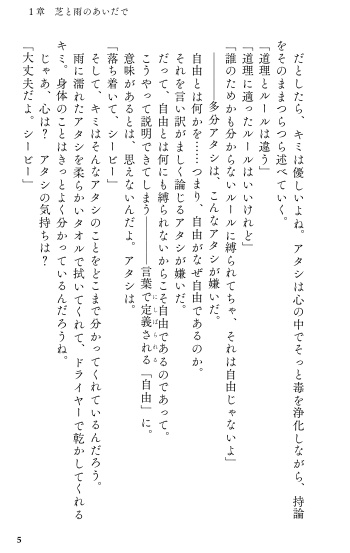 1章　芝と雨のあいだで
だとしたら、キミは優しいよね。アタシは心の中でそっと毒を浄化しながら、持論
をそのままつらつら述べていく。
「道理とルールは違う」
「道理に適ったルールはいいけれど」
「誰のためかも分からないルールに縛られてちゃ、それは自由じゃないよ」
――多分アタシは、こんなアタシが嫌いだ。
自由とは何かを……つまり、自由がなぜ自由であるのか。
それを言い訳がましく論じるアタシが嫌いだ。
だって、自由とは何にも縛られないからこそ自由であるのであって。
こうやって説明できてしまう――言葉で定義される「自由」に。
にしばられる
意味があるとは、思えないんだよ。アタシは。
「落ち着いて、シービー」
そして、キミはそんなアタシのことをどこまで分かってくれているんだろう。
雨に濡れたアタシを柔らかいタオルで拭いてくれて、ドライヤーで乾かしてくれる
キミ。身体のことはきっとよく分かっているんだろうね。
じゃあ、心は？　アタシの気持ちは？
「大丈夫だよ。シービー」
5